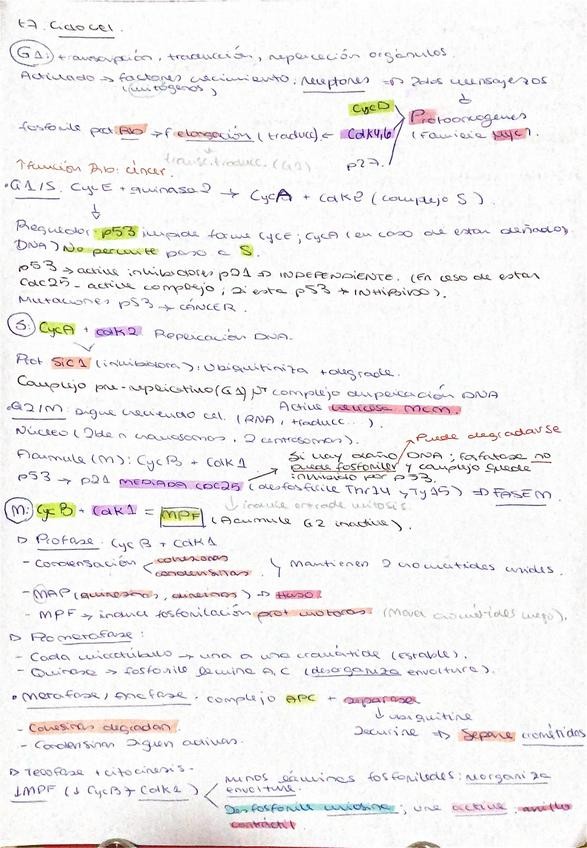 t7. Ciclo cel.
G1: transcripción, traducción, reparación orgánulos
Activado → factores crecimiento: receptores ⇒ 2dos mensajeros
(mitógenos)
CycD
Protooncogenes
fosforila prot Rb → elongación (traducc) ← Cdk4,6
(Familia Myc).
transc. traducc. (G1)
p27
↑ función Rb: cáncer.
• G1/S. CycE + quinasa 2 → CycA + cdk2 (complejo S).
Regulador: p53 impide forme CycE; CycA (en caso de estar dañados
DNA) No permite paso a S.
p53 → activa inhibidores p21 ⇒ INDEPENDIENTE. (En caso de estar
Cdc25 - activa complejo, si esta p53 → INHIBIDO).
Mutaciones p53 → CÁNCER.
S: CycA + cdk2 Replicación DNA.
Prot SiC1 (inhibidora): ubiquitiniza + degrada.
Complejo pre-replicativo (G1) complejo duplicación DNA
Activa helicasa MCM.
• G2/M: sigue creciendo cel. (RNA, traducc...).
Núcleo (2den cromosomas, 2 centrosomas).
Puede degradarse
Acumula (M): CycB + Cdk1
Si hay daño DNA; fosfatasa no
puede fosforilar y complejo queda
inhibido por p53.
p53 → p21 MEDIADA CDC25 (desfosforila Thr14 y Ty15) ⇒ FASE M.
↓ induce entrada mitosis.
M: CycB + Cdk1 = MPF (Acumula G2 inactiva).
▷ Profase. CycB + Cdk1
- Condensación < cohesinas condensinas. Mantienen 2 cromátidas unidas.
- MAP (quinesinas, dineinas) ⇒ Huso
- MPF → induce fosforilación prot motoras (Mover cromátidas luego).
▷ Prometafase:
- Cada microtúbulo → una a una cromátida (estable).
- Quinasa → fosforila lámina A, C (desorganiza envoltura).
• Metafase, Anafase. complejo APC + separasa
↓ ubiquitina
- Cohesinas degradan.
Securina ⇒ Separa cromátidas
- Condensinas siguen activas.
▷ Telofase + citocinesis -
↓MPF (↓ CycB + Cdk1)
menos láminas fosforiladas: reorganiza
envoltura.
Desfosforila miosina; une actina anillo
contráctil